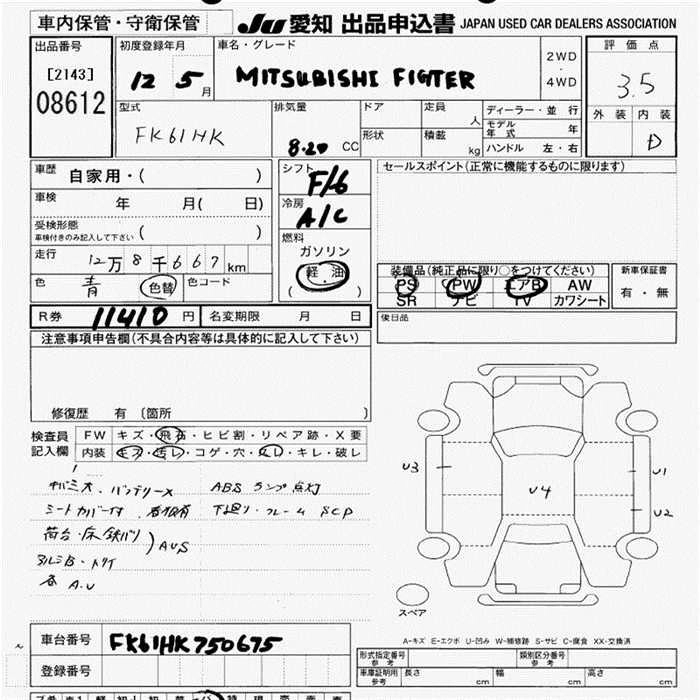 車内保管・守衛保管
JU 愛知 出品申込書 JAPAN USED CAR DEALERS ASSOCIATION
出品番号 初度登録年月 車名・グレード 2WD 評価点
[2143] 12 5月 MITSUBISHI FIGTER 4WD 3.5
08612
型式 排気量 ドア 定員 人 ディーラー・並行 外装 内装
FK61HK 8.20 CC モデル年式 年 D
形状 積載 kg ハンドル 左・右
車歴 自家用・( ) シフト F/6 セールスポイント(正常に機能するものに限ります)
車検 年 月( 日) 冷房 A/C
受検形態 ( )
車検付きのみ記入して下さい
燃料 ガソリン
走行 12万8千667km 軽油 装備品(純正品に限り○をつけてください) 新車保証書
色 青 色替 色コード ( ) PS PW エアB AW 有・無
SR ナビ TV カワシート
R券 11410円 名変期限 月 日 後日品
注意事項申告欄(不具合内容等は具体的に記入して下さい)
修復歴 有 〔箇所 〕
検査員 FW キズ・飛石・ヒビ割・リペア跡・X要
記入欄 内装 キズ・汚レ・コゲ・穴・スレ・キレ・破レ
U3 U4 U1
バッテリーメ ABS ランプ点灯
シートカバー付 下廻り・フレーム SCP U2
荷台・床鉄バリ
AUS
A.U
スペア
A-キズ E-エクボ U-凹み W-補修跡 S-サビ C-腐食 XX-交換済
車台番号 FK61HK750675
登録番号
形式指定番号 参考 類別区分番号 参考
車庫証明用 参考 長さ cm 幅 cm 高さ cm